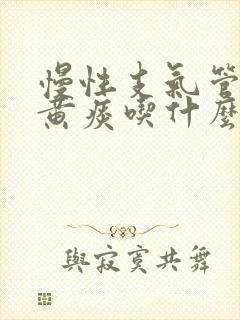 慢性支氣管
黃痰喫什麼
與寂寞共舞